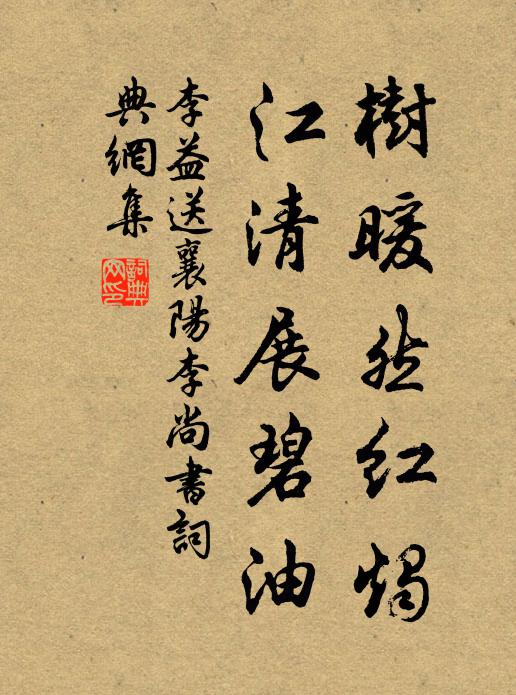 樹暖然紅燭
江清展碧油
李益送襄陽李尚書詞
典網集
詞典網印